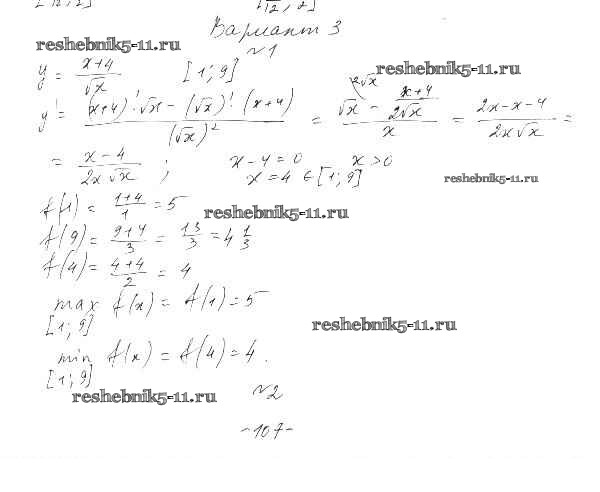 [π/12; 2] [π/12; 2]
Вариант 3
reshebnik5-11.ru
№1
y = (x+4)/√x [1; 9]
reshebnik5-11.ru
y' = ((x+4)'·√x − (√x)'(x+4))/(√x)² = (√x^(2√x) − (x+4)/(2√x))/x = (2x−x−4)/(2x√x) =
= (x−4)/(2x√x) ; x−4=0 x>0
x=4 ∈ [1; 9]
reshebnik5-11.ru
f(1) = (1+4)/1 = 5
reshebnik5-11.ru
f(9) = (9+4)/3 = 13/3 = 4 1/3
f(4) = (4+4)/2 = 4
max f(x) = f(1) = 5
[1; 9]
reshebnik5-11.ru
min f(x) = f(4) = 4.
[1; 9]
reshebnik5-11.ru
№2
-107-